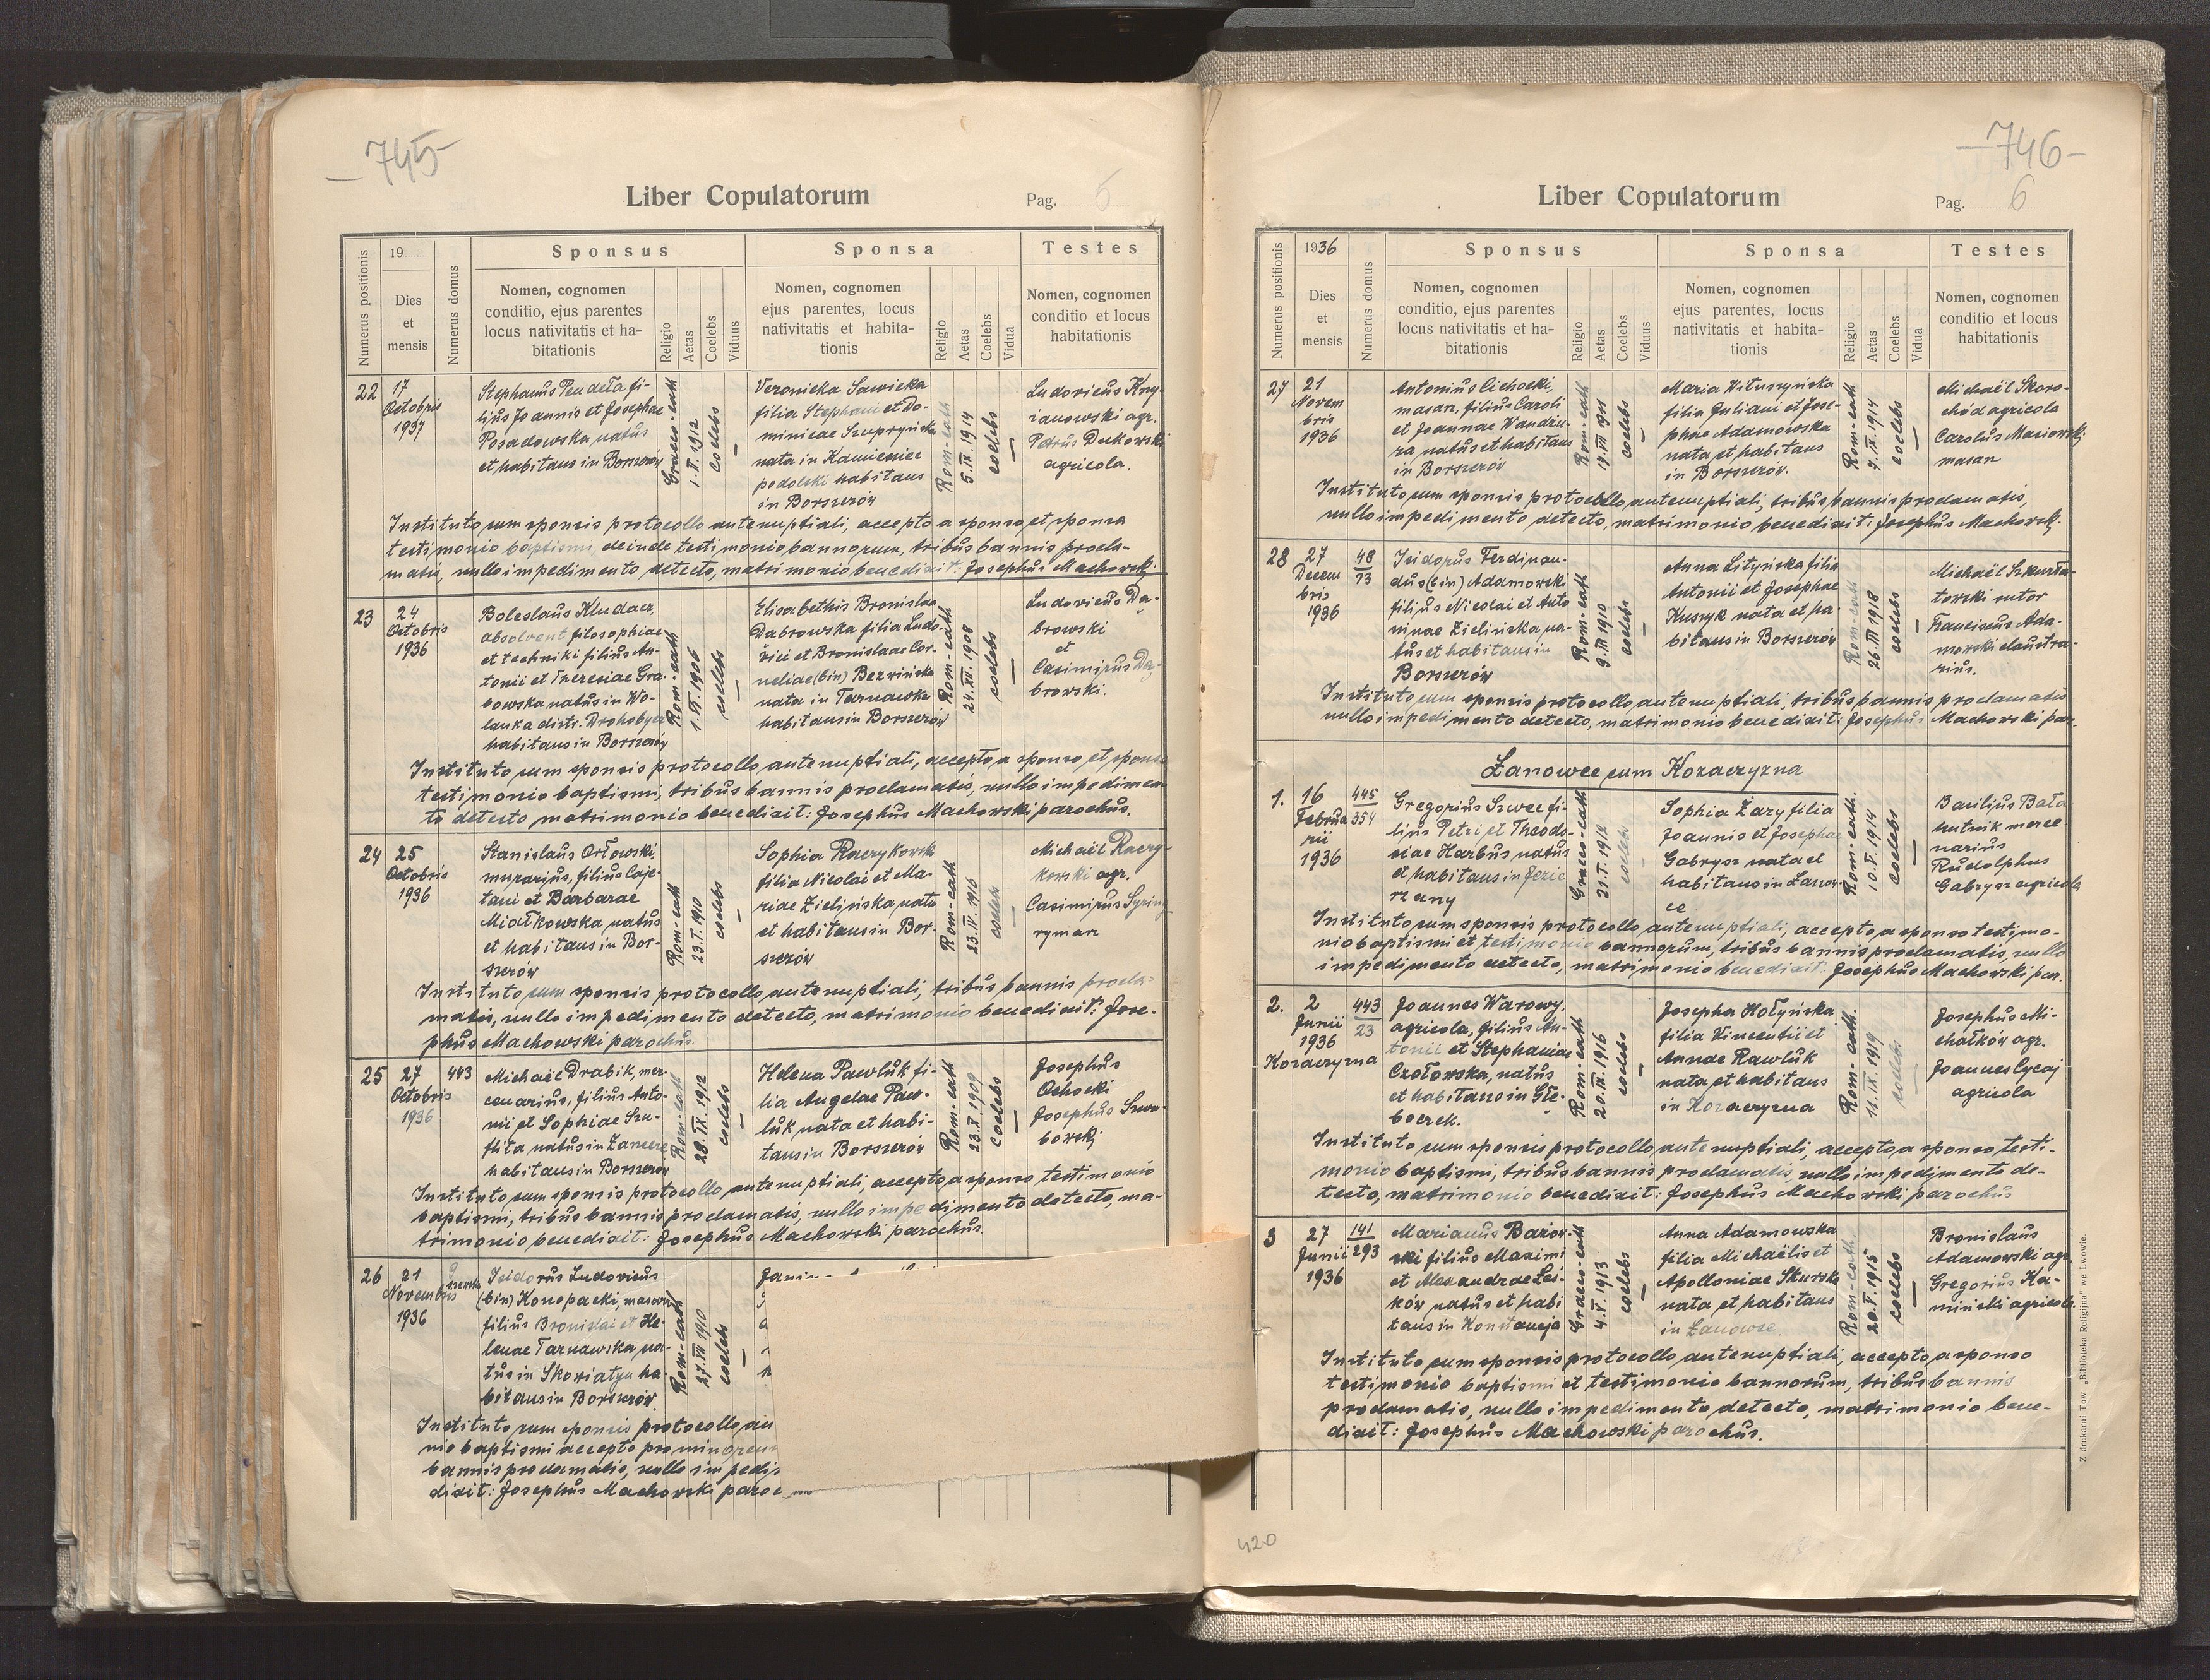 — 745 —
Liber Copulatorum
Pag. 5
Numerus positionis
19
Dies
et
mensis
Numerus domus
Sponsus
Nomen, cognomen
conditio, ejus parentes
locus nativitatis et ha-
bitationis
Religio
Aetas
Coelebs
Viduus
Sponsa
Nomen, cognomen
ejus parentes, locus
nativitatis et habita-
tionis
Religio
Aetas
Coelebs
Vidua
Testes
Nomen, cognomen
conditio et locus
habitationis
22
17
Octobris
1937
Stephanus Pendeła fi-
lius Joannis et Josephae
Posadowska natus
et habitans in Borszczów
Graeco-cath
1. II. 1912
coelebs
—
Veronicka Sawicka
filia Stephani et Do-
minicae Szupryńska
nata in Kamieniec
podolski habitans
in Borszczów
Rom-cath
5. IX. 1914
coelebs
—
Ludovicus Krzy-
żanowski agr.
Petrus Dukowski
agricola.
Instituto cum sponsis protocollo antenuptiali, accepto a sponso et sponsa
testimonio baptismi, deinde testimonio bannorum, tribus bannis procla-
matis, nullo impedimento detecto, matrimonio benedixit: Josephus Machowski.
23
24
Octobris
1936
Boleslaus Kludacz
absolvent filosophiae
et techniki filius An-
tonii et Theresiae Gra-
bowska natus in Wo-
lanka distr. Drohobycz
habitans in Borszczów
Rom-cath
1. VI. 1906
coelebs
—
Elisabethis Bronislaa
Dabrowska filia Ludo-
vici et Bronislaae Cor-
neliae (bin) Bezwińska
nata in Tarnawka
habitans in Borszczów
Rom-cath
24. XII. 1908
coelebs
—
Ludovicus Da-
browski
et
Casimirus Da-
browski.
Instituto cum sponsis protocollo antenuptiali, accepto a sponso et sponsa
testimonio baptismi, tribus bannis proclamatis, nullo impedimen-
to detecto matrimonio benedixit: Josephus Machowski parochus.
24
25
Octobris
1936
Stanislaus Orłowski,
murarius, filius Caje-
tani et Barbarae
Miatkowska, natus
et habitans in Bor-
szczów
Rom-cath
23. I. 1910
coelebs
—
Sophia Raczykowska
filia Nicolai et Ma-
riae Zielińska nata
et habitans in Bor-
szczów
Rom-cath
23. IV. 1916
coelebs
—
Michaël Raczy-
kowski agr.
Casimirus
rymarz
Instituto cum sponsis protocollo antenuptiali, tribus bannis procla-
matis, nullo impedimento detecto, matrimonio benedixit: Jose-
phus Machowski parochus.
25
27
Octobris
1936
443
Michaël Drabik, mer-
cenarius, filius Anto-
nii et Sophiae Szu-
flita natus in Łanowce
habitans in Borszczów
Rom-cath
28. IX. 1912
coelebs
—
Helena Pawluk fi-
lia Angelae Paw-
luk nata et habi-
tans in Borszczów
Rom-cath
23. X 1909
coelebs
—
Josephus
Ochocki
Josephus Szum-
borski
Instituto cum sponsis protocollo antenuptiali, accepto a sponso, testimonio
baptismi, tribus bannis proclamatis, nullo impedimento detecto, ma-
trimonio benedixit: Josephus Machowski parochus.
26
21
Novembris
1936
Isidorus Ludovicus
(bin) Konopacki, masarz
filius Bronislai et He-
lenae Tarnawska na-
tus in Skowiatyn ha-
bitans in Borszczów.
Rom-cath
27. VII 1910
coelebs
—
Instituto cum sponsis protocollo an
nio baptismi accepto pro
bannis proclamatis, nullo impedi
dixit: Josephus Machowski paroc
— 746 —
Liber Copulatorum
Pag. 6
Numerus positionis
1936
Dies
et
mensis
Numerus domus
Sponsus
Nomen, cognomen
conditio, ejus parentes
locus nativitatis et ha-
bitationis
Religio
Aetas
Coelebs
Viduus
Sponsa
Nomen, cognomen
ejus parentes, locus
nativitatis et habita-
tionis
Religio
Aetas
Coelebs
Vidua
Testes
Nomen, cognomen
conditio et locus
habitationis
27
21
Novem
bris
1936
Antonius Cichocki,
masarz, filius Caroli
et Joannae Wandziu-
ra natus et habitans
in Borszczów
Rom-cath
17. III 1911
coelebs
—
Maria Wituszyńska
filia Juliani et Jose-
phae Adamowska
nata et habitans
in Borszczów.
Rom-cath
7. IX. 1914
coelebs
—
Michaël Skoro-
chód agricola
Carolus Masiowski
masarz
Instituto cum sponsis protocollo antenuptiali, tribus bannis proclamatis,
nullo impedimento detecto, matrimonio benedixit: Josephus Machowski.
28
27
Decem
bris
1936
48
73
Isidorus Ferdinan-
dus (bin) Adamowski
filius Nicolai et Anto
ninae Zielińska na-
tus et habitans in
Borszczów
Rom-cath
9. III 1910
coelebs
—
Anna Lityńska filia
Antonii et Josephae
Kuszyk nata et ha-
bitans in Borszczów
Rom-cath
26. III 1918
coelebs
—
Michaël Szkurła-
towski sutor
Franciscus Ada-
mowski claustra-
rius.
Instituto cum sponsis protocollo antenuptiali, tribus bannis proclamatis
nullo impedimento detecto, matrimonio benedixit: Josephus Machowski par.
Łanowce cum Kozaczyzna
1.
16
Februa
rii
1936
445
354
Gregorius Szwec fi-
lius Petri et Theodo-
siae Harbus natus
et habitans in Jezie
rzany
Graeco-cath
21. I. 1912
coelebs
—
Sophia Łazy filia
Joannis et Josephae
Gabrysz nata et
habitans in Łanow-
ce
Rom-cath.
10. V. 1914
coelebs
—
Basilius Bała
hutnik merce-
narius
Rudolphus
Gabrysz agricola
Instituto cum sponsis protocollo antenuptiali, accepto a sponso testimo-
nio baptismi et testimonio bannorum, tribus bannis proclamatis, nullo
impedimento detecto, matrimonio benedixit: Josephus Machowski par.
2.
2
Junii
1936
Kozaczyzna
443
23
Joannes Warowy,
agricola, filius An-
tonii et Stephaniae
Czołowska, natus
et habitans in Głę-
boczek.
Rom-cath
20. IX. 1916
coelebs
—
Josepha Hołyńska
filia Vincentii et
Annae Rawluk
nata et habitans
in Kozaczyzna
Rom-cath.
11. IX. 1919
coelebs
—
Josephus Mi-
chałków agr.
Joannes Cycaj
agricola
Instituto cum sponsis protocollo antenuptiali, accepto a sponso testi-
monio baptismi, tribus bannis proclamatis, nullo impedimento de-
tecto, matrimonio benedixit: Josephus Machowski parochus
3
27
Junii
1936
141
293
Marianus Barow-
ski filius Maximi
et Alexandrae Leś-
ków natus et habi
tans in Konstancja
Graeco-cath
4. V. 1913
coelebs
—
Anna Adamowska
filia Michaëlis et
Apolloniae Skurska
nata et habitans
in Łanowce
Rom-cath
20. V. 1915
coelebs
—
Bronislaus
Adamowski agr.
Gregorius Ka-
miński agricola.
Instituto cum sponsis protocollo antenuptiali, accepto a sponso
testimonio baptismi et testimonio bannorum, tribus bannis
proclamatis, nullo impedimento detecto, matrimonio bene-
dixit: Josephus Machowski parochus.
Z drukarni Tow. „Biblioteka Religijna" we Lwowie.
420